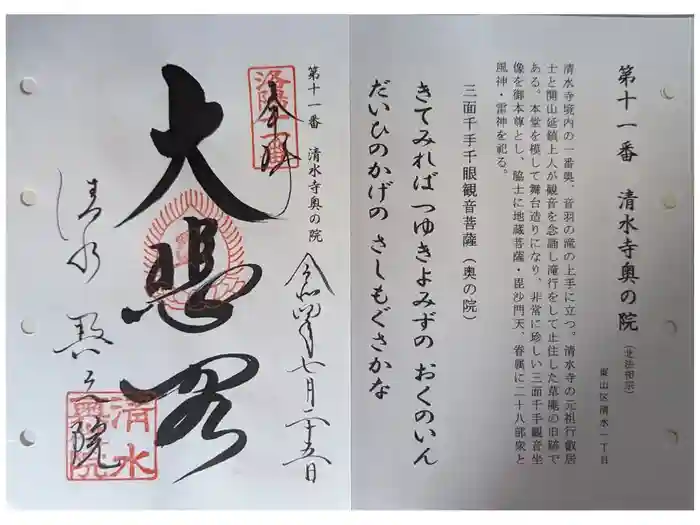 第十一番 清水寺奥の院
(北法相宗)
東山区清水一丁目
清水寺境内の一番奥、音羽の滝の上手に立つ。清水寺の元祖行叡居
士と開山延鎮上人が観音を念誦し滝行をして止住した草庵の旧跡で
ある。本堂を模して舞台造りになり、非常に珍しい三面千手観音坐
像を御本尊とし、脇士に地蔵菩薩・毘沙門天、眷属に二十八部衆と
風神・雷神を祀る。
三面千手千眼観音菩薩(奥の院)
きてみればつゆきよみずの おくのいん
だいひのかげの さしもぐさかな
第十一番 清水寺奥の院
奉拝
大悲閣
令和四年七月二十五日
清水 奥之院
清水
奥之院